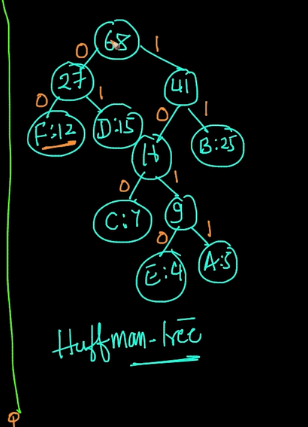 68
0 1
27 41
0 1 0 1
F:12 D:15 16 B:25
0 1
C:7 9
0 1
E:4 A:5
Huffman-tree